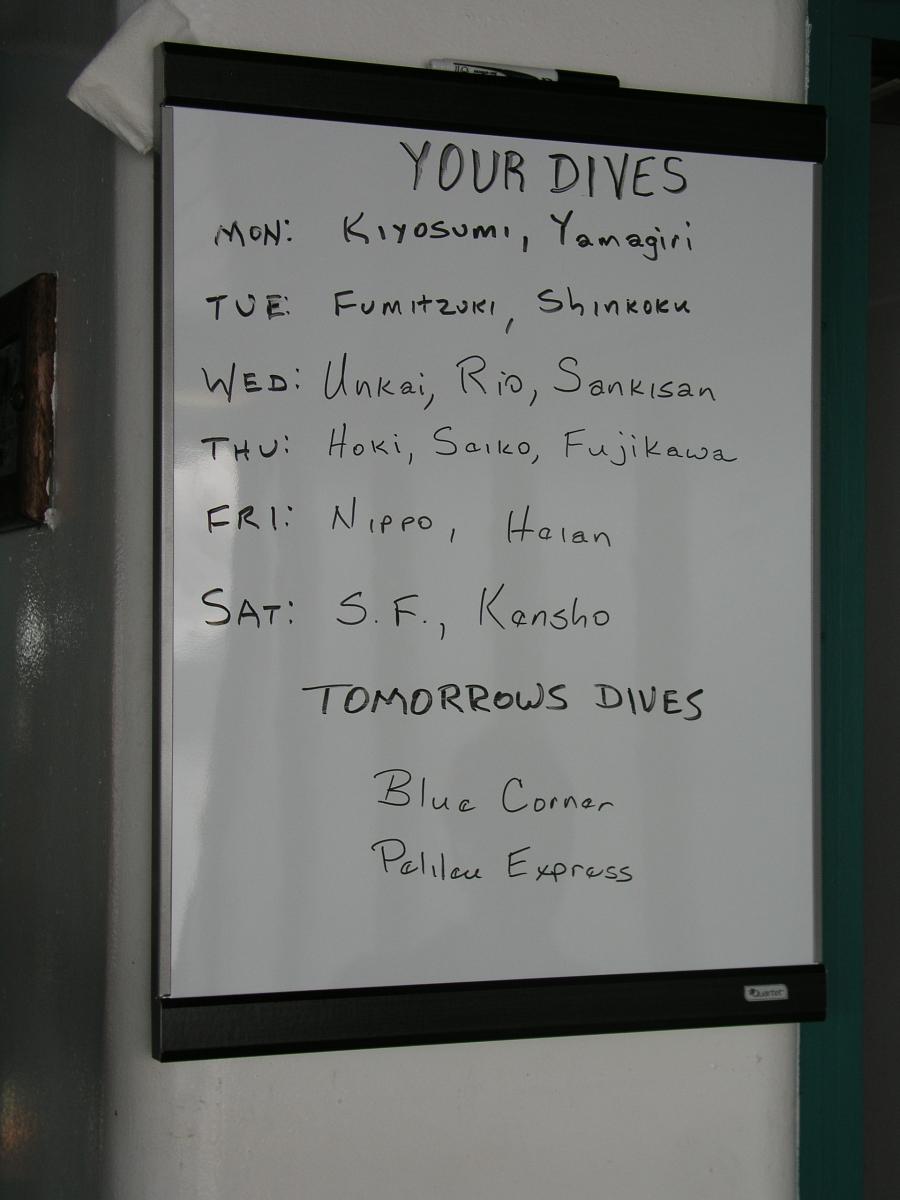 YOUR DIVES
MON: KIYOSUMI, Yamagiri
TUE: FUMITZUKI, Shinkoku
WED: Unkai, Rio, Sankisan
THU: Hoki, Saiko, Fujikawa
FRI: Nippo, Haian
SAT: S.F., Kensho
TOMORROWS DIVES
Blue Corner
Pelilau Express
Quartet